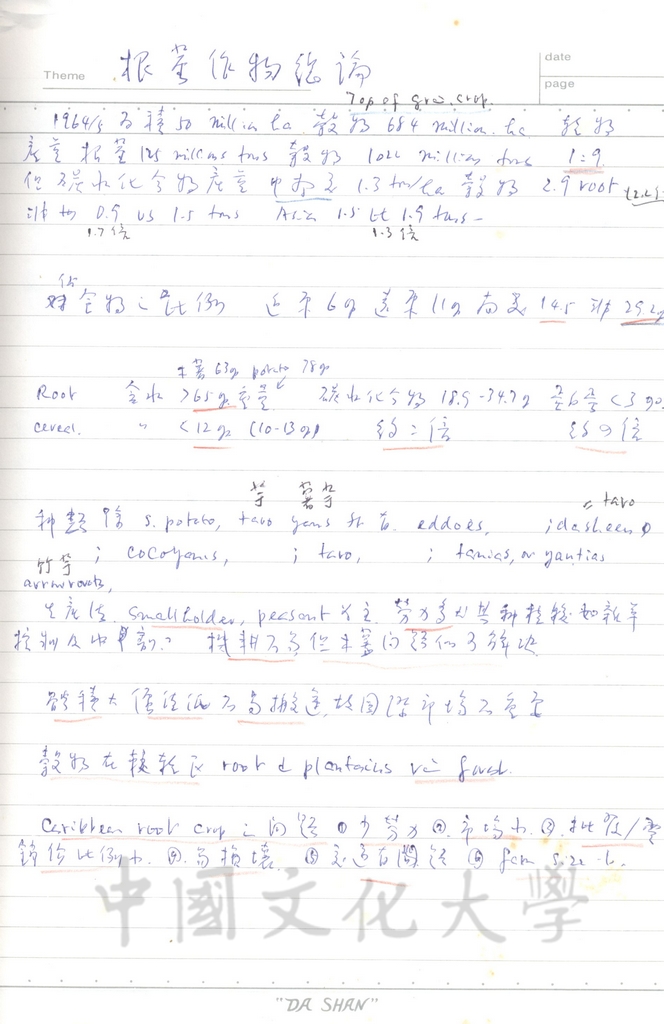 Theme 根莖作物總論
date
page
Top of grain crop.
1964/5 面積 50 million ha. 穀物 684 million. ha 乾物
產量 根莖 125 millions tons 穀物 1022 million tons 1:9
但碳水化合物產量 1.3 ton/ha 穀物 2.9 root (2.2
非洲 0.9 vs 1.5 tons Asia 1.5 比 1.9 tons
1.7倍 1.3倍
佔
食物之比例 近東6% 遠東11% 南美 14.5 非 29.2%
木薯 63% potato 78%
Root 含水 >65% 重量 碳水化合物 18.9-34.7% 蛋白質 <3%
cereal. 〃 <12% (10-13%) 約二倍 約四倍
芋 薯芋 taro
種類 除 s. potato, taro yams 外有 eddoes, ; dasheen
竹芋 ; cocoyams, ; taro, ; tanias, or yautias
arrowroots,
生產 smallholder, peasant 為主. 勞力多 其 種植 如 除草
機耕不易 但木薯
體積大 價值低 不易搬運 故國際市場不重要
穀物在較乾區 root & plantains in forest.
Caribbean root crop 之問題 ① 少勞力 ② 市場小 ③ 批發/零
銷價比例小 ④ 易損壞 ⑤ 交通有問題 ⑥ farm size 小.
中國文化大學
"DA SHAN"